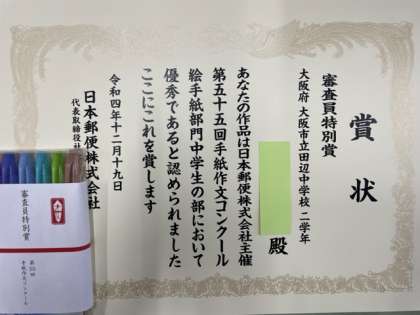 賞状
審査員特別賞
大阪府 大阪市立田辺中学校 二学年
殿
あなたの作品は日本郵便株式会社主催
第五十五回手紙作文コンクール
絵手紙部門中学生の部において
優秀であると認められました
ここにこれを賞します
令和四年十二月十九日
日本郵便株式会社
代表取締役社
審査員特別賞
第55回
手紙作文コンクール